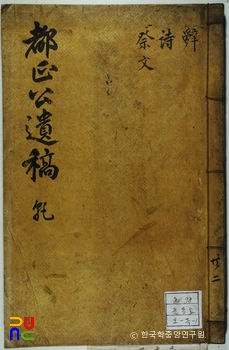 辭
詩
祭文
都正公遺稿 乾
共二
© 한국학중앙연구원